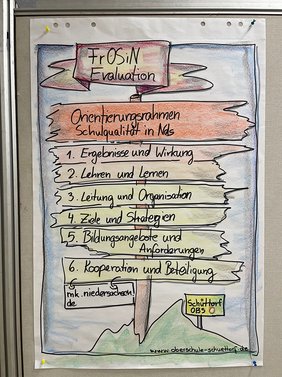 FrOSiN
Evaluation
Orientierungsrahmen
Schulqualität in Nds
1. Ergebnisse und Wirkung
2. Lehren und Lernen
3. Leitung und Organisation
4. Ziele und Strategien
5. Bildungsangebote und
Anforderungen
6. Kooperation und Beteiligung
mk.niedersachsen.
de
Schüttorf
OBS
www.oberschule-schuettorf.de